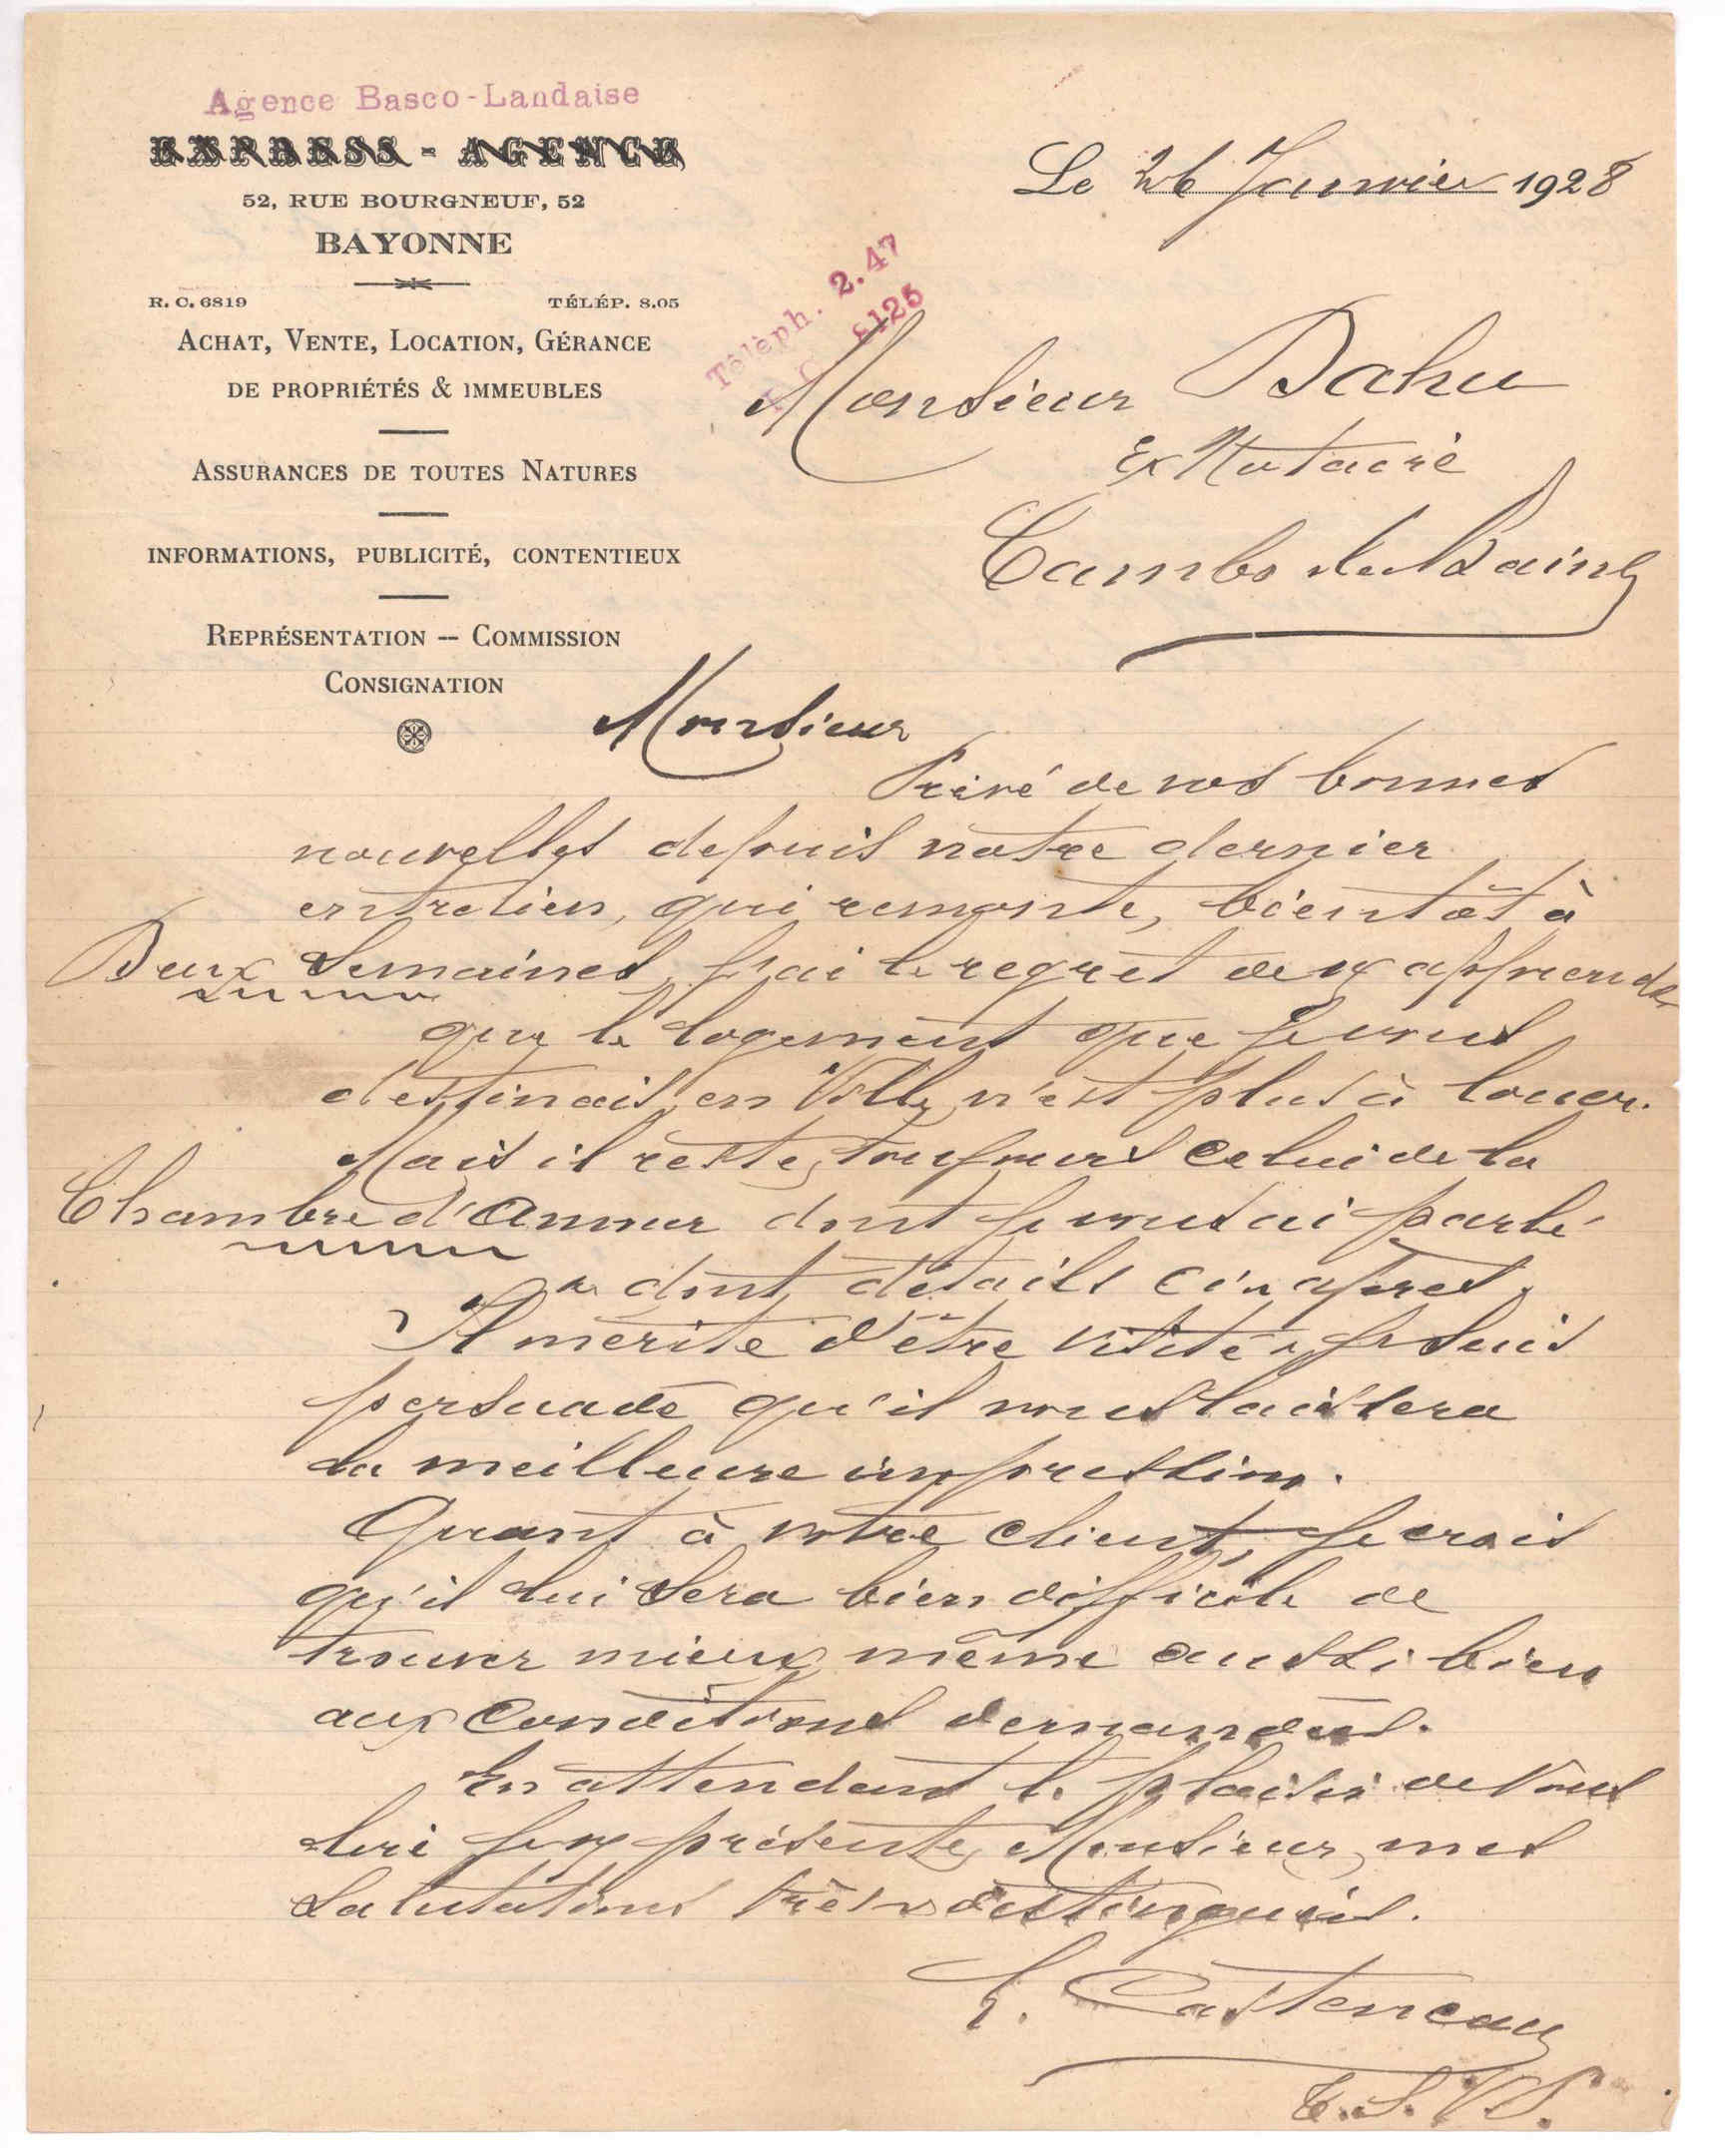 Agence Basco-Landaise
EXPRESS - AGENCE
52, RUE BOURGNEUF, 52
BAYONNE
R. C. 6819
TÉLÉP. 8.05
ACHAT, VENTE, LOCATION, GÉRANCE
DE PROPRIÉTÉS & IMMEUBLES
ASSURANCES DE TOUTES NATURES
INFORMATIONS, PUBLICITÉ, CONTENTIEUX
REPRÉSENTATION — COMMISSION
CONSIGNATION
Le 26 Janvier 1928
Téléph. 2.47
Monsieur Dahu
Ex Notaire
Cambo les Bains
Monsieur
Privé de vos bonnes
nouvelles depuis notre dernier
entretien, qui remonte, bientôt à
Deux Semaines, j'ai le regret de v/ apprendre
que le logement que je vous
destinais en Ville n'est plus à louer.
Mais il reste toujours celui de la
Chambre d'Amour dont je vous ai parlé
& dont détails ci-après.
Il mérite d'être visité & je suis
persuadé qu'il vous laissera
la meilleure impression.
Quant à votre client, je crois
qu'il lui sera bien difficile de
trouver mieux même aussi bien
aux conditions demandées.
En attendant le plaisir de vous
lire je v/ présente, Monsieur, mes
salutations très distinguées.
Casteneau
T.S.V.P.